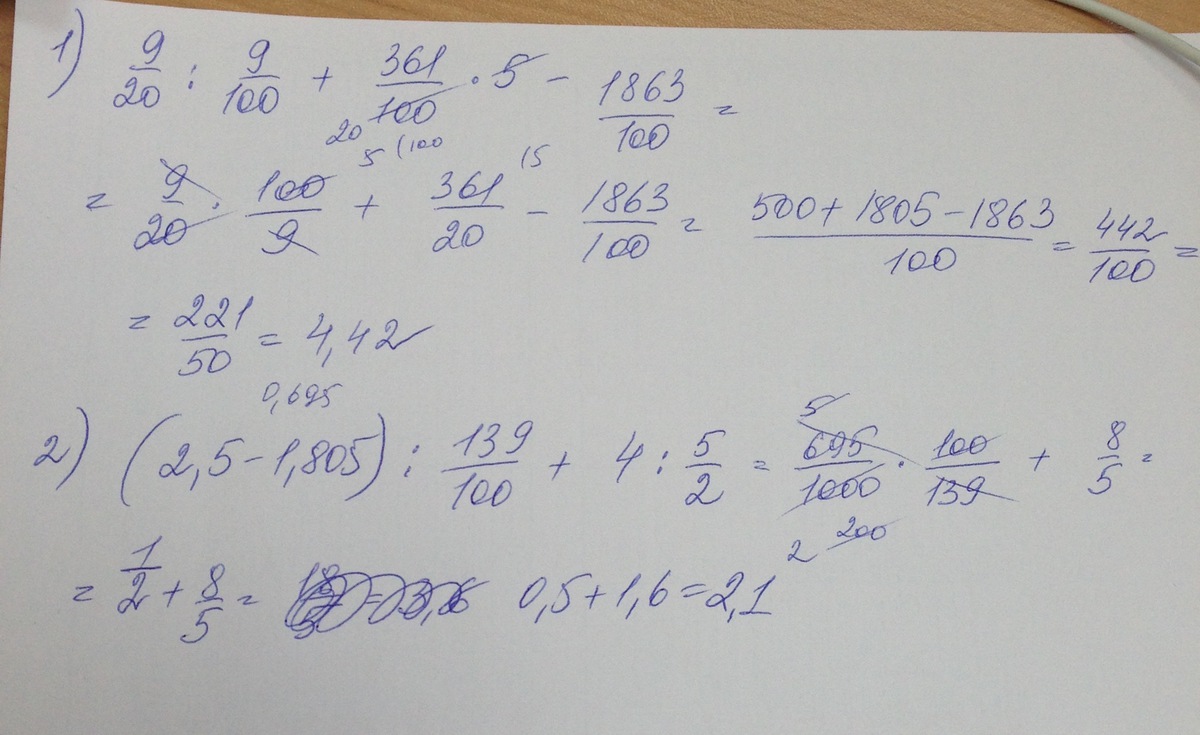 1) 9/20 : 9/100 + 361/100 · 5 − 1863/100 =
20 5 (100 (5
= 9/20 · 100/9 + 361/20 − 1863/100 = (500+1805−1863)/100 = 442/100 =
= 221/50 = 4,42
0,695
2) (2,5−1,805) : 139/100 + 4 : 5/2 = 695/1000 · 100/139 + 8/5 =
5
2 200
= 1/2 + 8/5 = 0,5+1,6=2,1